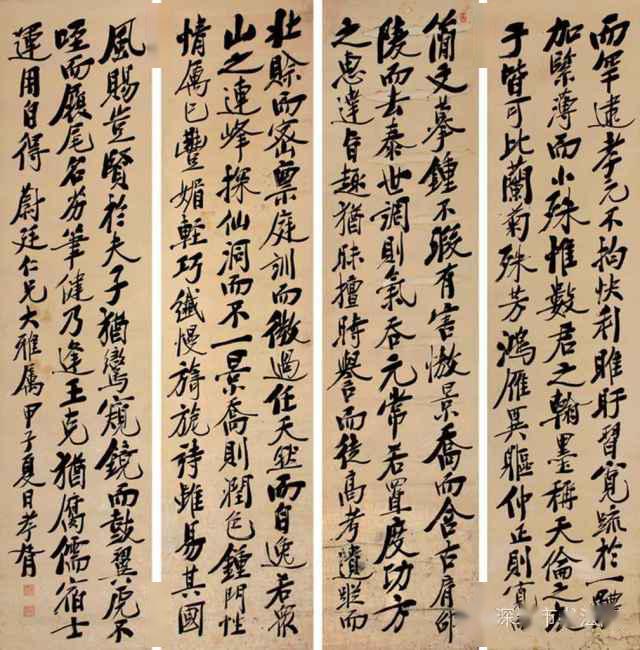 而罕逮孝元不拘快利睢盱習寬疏於一體
加緊薄而小殊惟數君之翰墨稱天倫之友
于皆可比蘭菊殊芳鴻雁異軀仲正則寬
簡文摹鍾不瑕有害傲景喬而含古肩邵
陵而去泰世調則氣吞元常若置度功方
之惠達自趣猶昧擅時譽而徒高考遺蹤而
壯賒而密稟庭訓而微過任天然而自逸若眾
山之連峰探仙洞而不一景喬則潤色鍾門性
情厲已豐媚輕巧纖慢旖旎詩雖易其國
風賜豈賢於夫子猶鸞窺鏡而鼓翼虎不
咥而履尾名芬筆健乃逢王克猶腐儒宿士
運用自得 蔚廷仁兄大雅屬 甲子夏日孝胥